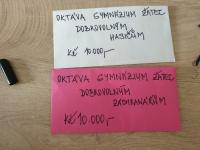 OKTÁVA GYMNÁZIUM ŽATEC
DOBROVOLNÝM
HASIČŮM
KČ 10.000,-
OKTÁVA GYMNÁZIUM ŽATEC
DOBROVOLNÝM
ZÁCHRANÁŘŮM
KČ 10.000,-